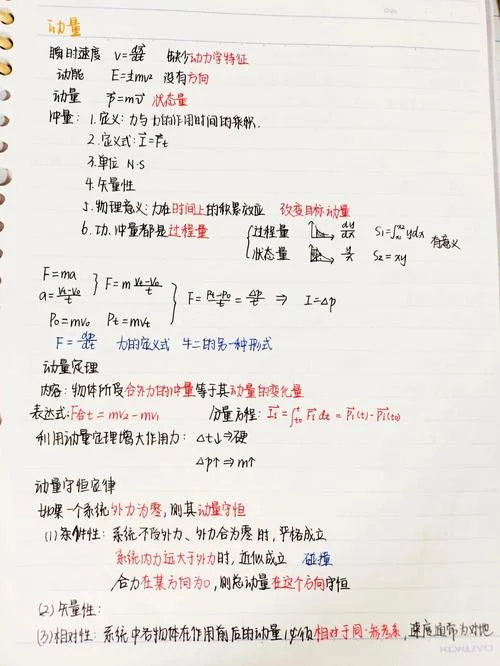 动量
瞬时速度 v=dx/dt 缺少动力学特征
动能 E=½mv² 没有方向
动量 p⃗=mv⃗ 状态量
冲量: 1.定义: 力与力的作用时间的乘积.
2.定义式: I⃗=F⃗t
3.单位 N·S
4.矢量性
5.物理意义: 力在时间上的积累效应 改变目标动量
6.功、冲量都是过程量
过程量 dy/dx S₁=∫x₁x₂ydx 有意义
状态量 y/x S₂=xy
F=ma
a=(vt-v0)/t
F=m(vt-v0)/t
P0=mv0 Pt=mvt
F=(Pt-P0)/t=Δp/t ⇒ I=Δp
F=dp/dt 力的定义式 牛二的另一种形式
动量定理
内容: 物体所受合外力的冲量等于其动量的变化量
表达式: F合t=mv2-mv1 分量方程: I⃗i=∫t0t F⃗idt=P⃗i(t)-P⃗i(t0)
利用动量定理增大作用力: Δt↓⇒硬
Δp↑⇒m↑
动量守恒定律
如果一个系统外力为零, 则其动量守恒
(1)条件性: 系统不受外力、外力合为零时, 严格成立
系统内力远大于外力时, 近似成立 碰撞
合力在某方向为0, 则总动量在这个方向守恒
(2)矢量性:
(3)相对性: 系统中各物体在作用前后的动量必须相对于同一参考系, 速度通常为对地
KOKUYO